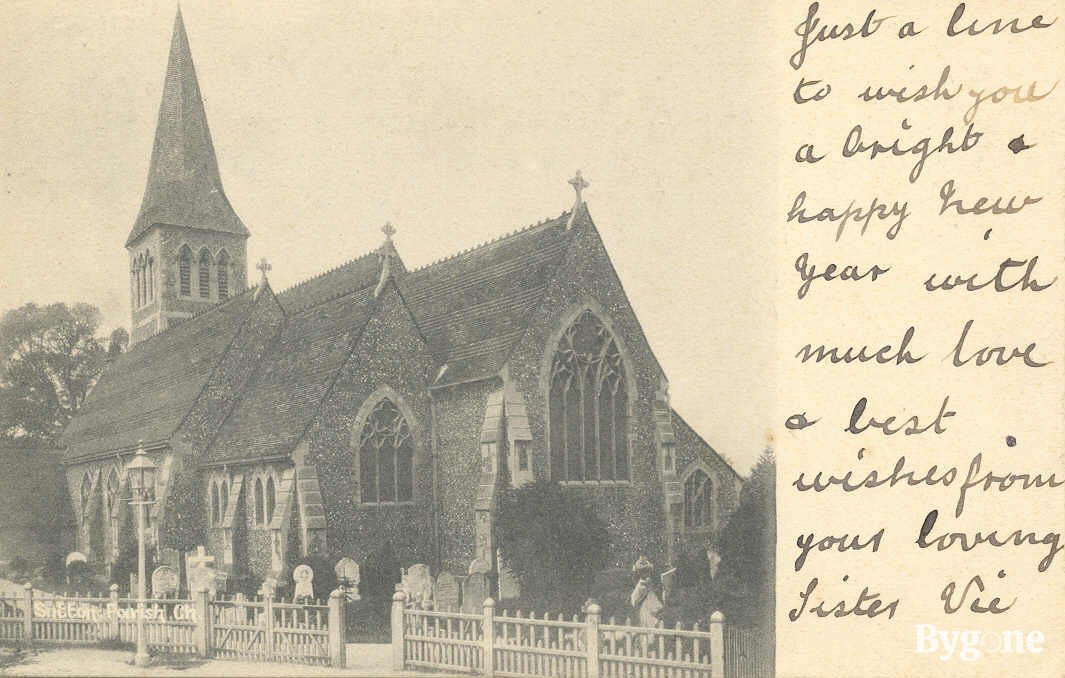 Just a line
to wish you
a bright &
happy New
Year with
much love
& best
wishes from
your loving
Sister Vie
Sutton Parish Ch
Bygone